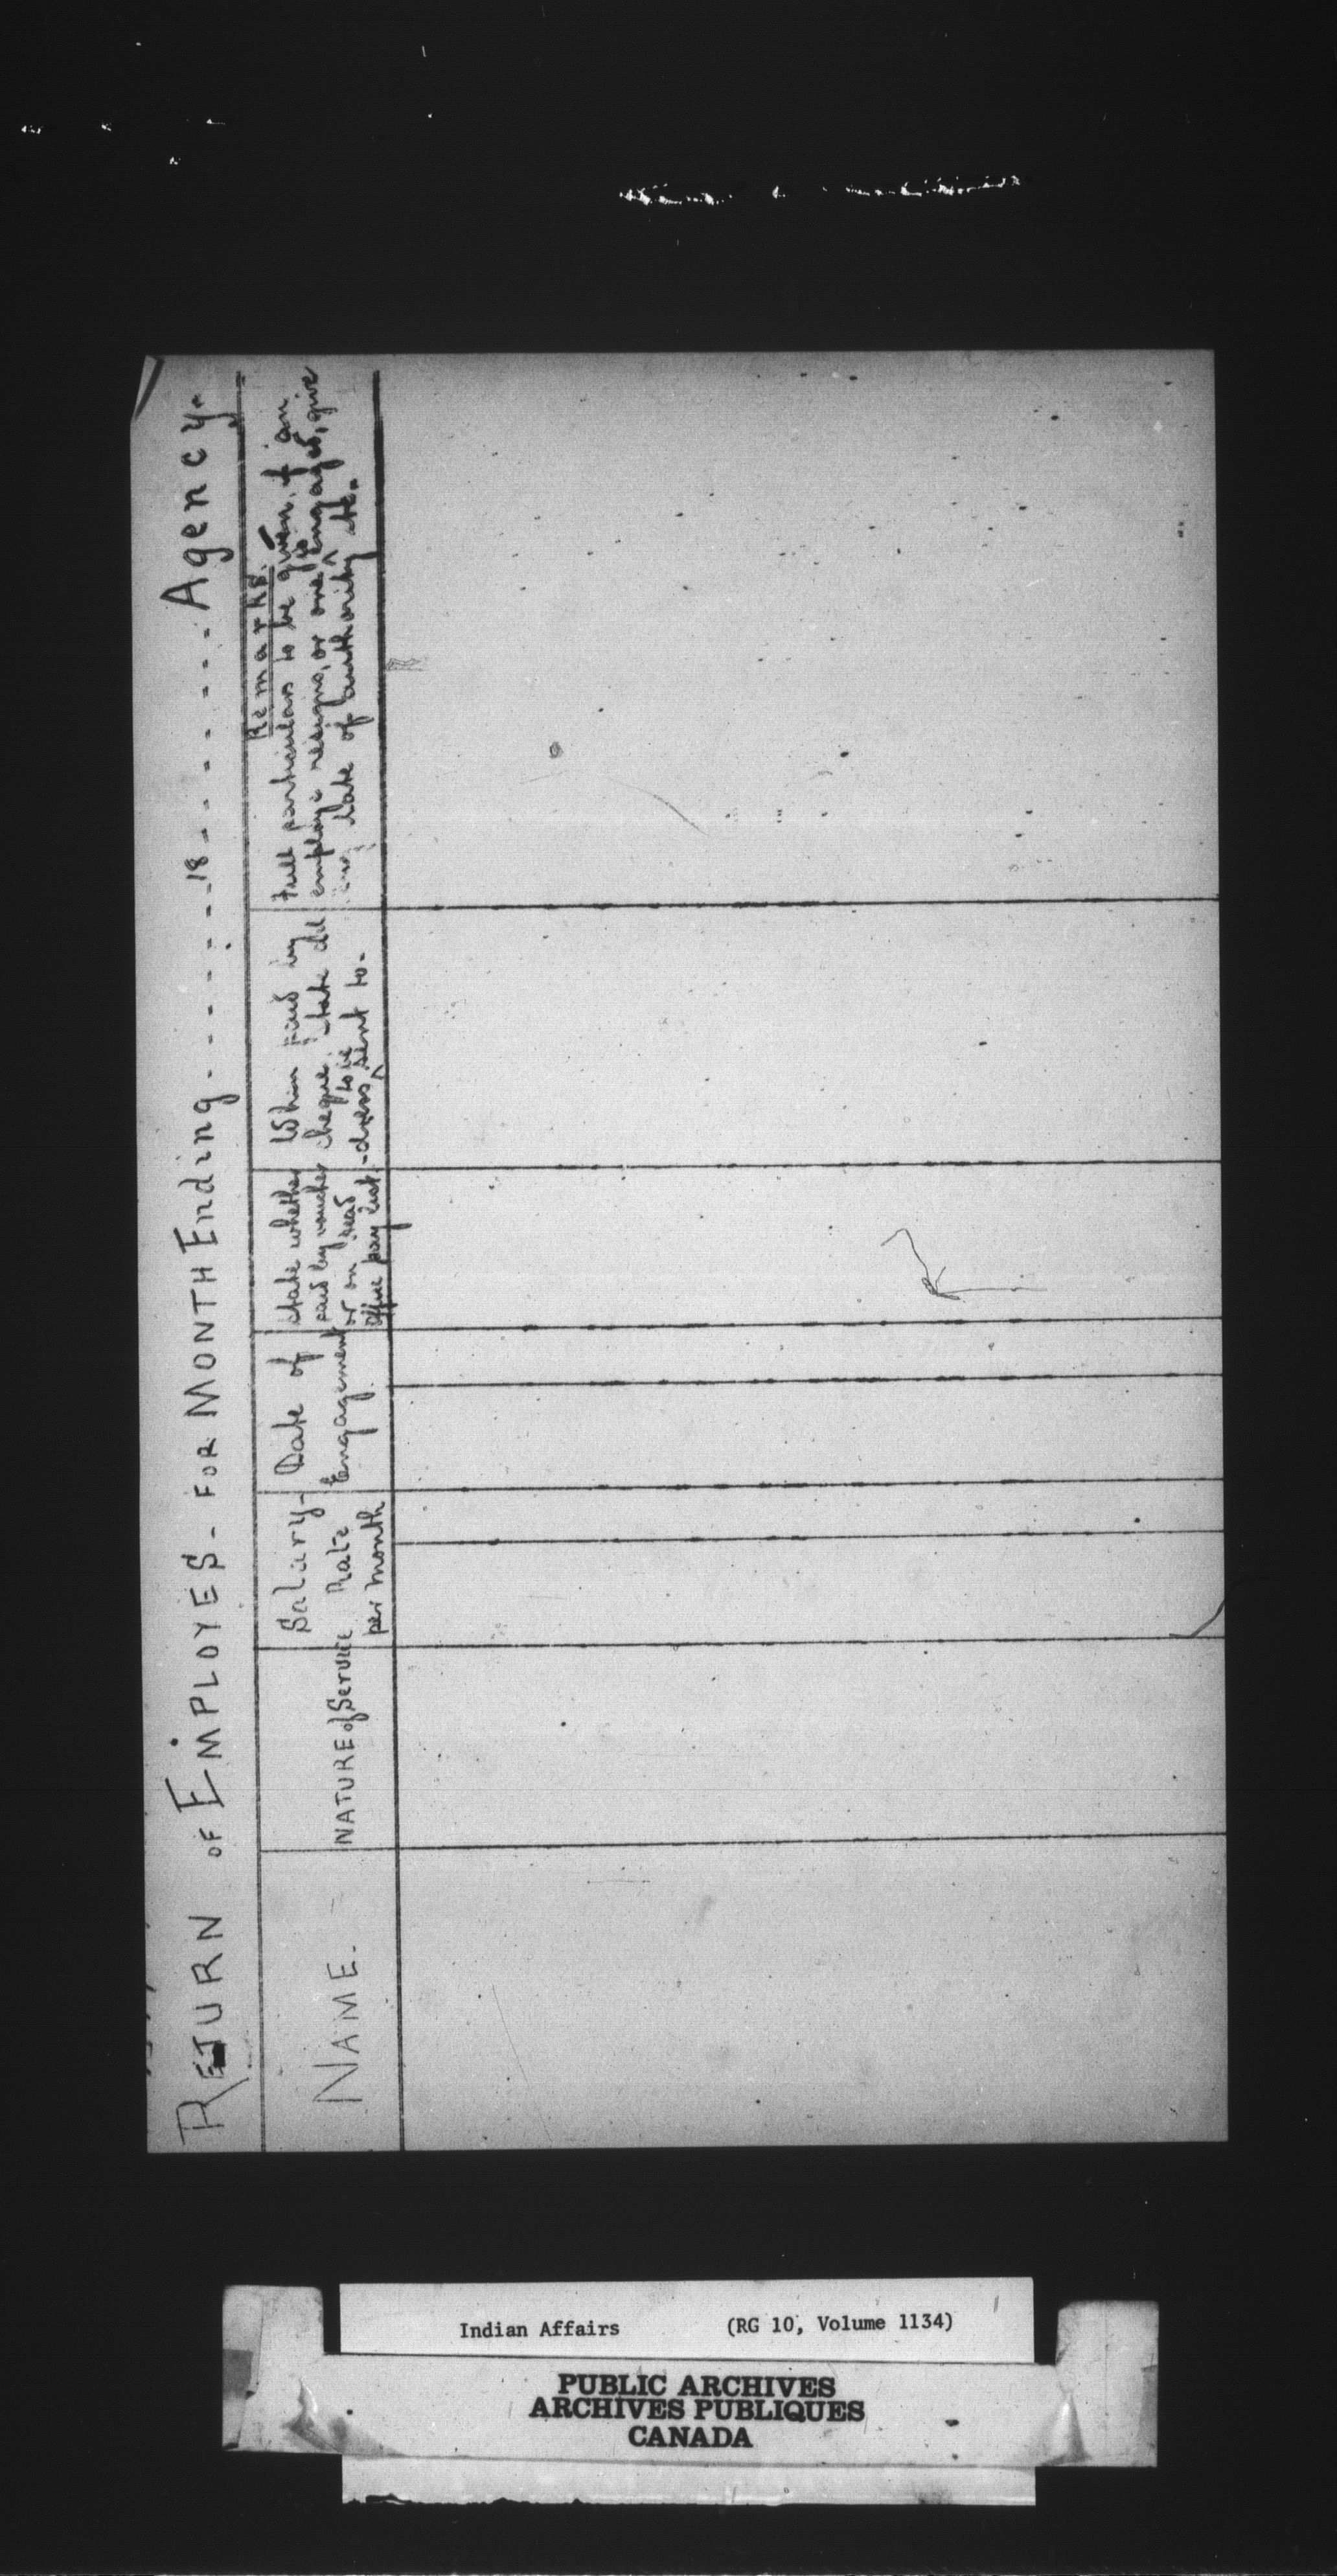 RETURN OF EMPLOYES - FOR MONTH Ending - - - - - - 18 - - - - - - - - Agency.
NAME.
NATURE of Service
Salary -
Rate
per month
Date of
Engagement
State whether
paid by voucher
or on Head
Office pay list
When paid by
cheque, state ad
-dress to be sent to -
Remarks.
Full particulars to be given, if an
employé resigns, or one is engaged, give
date of authority &c.
Indian Affairs (RG 10, Volume 1134)
PUBLIC ARCHIVES
ARCHIVES PUBLIQUES
CANADA